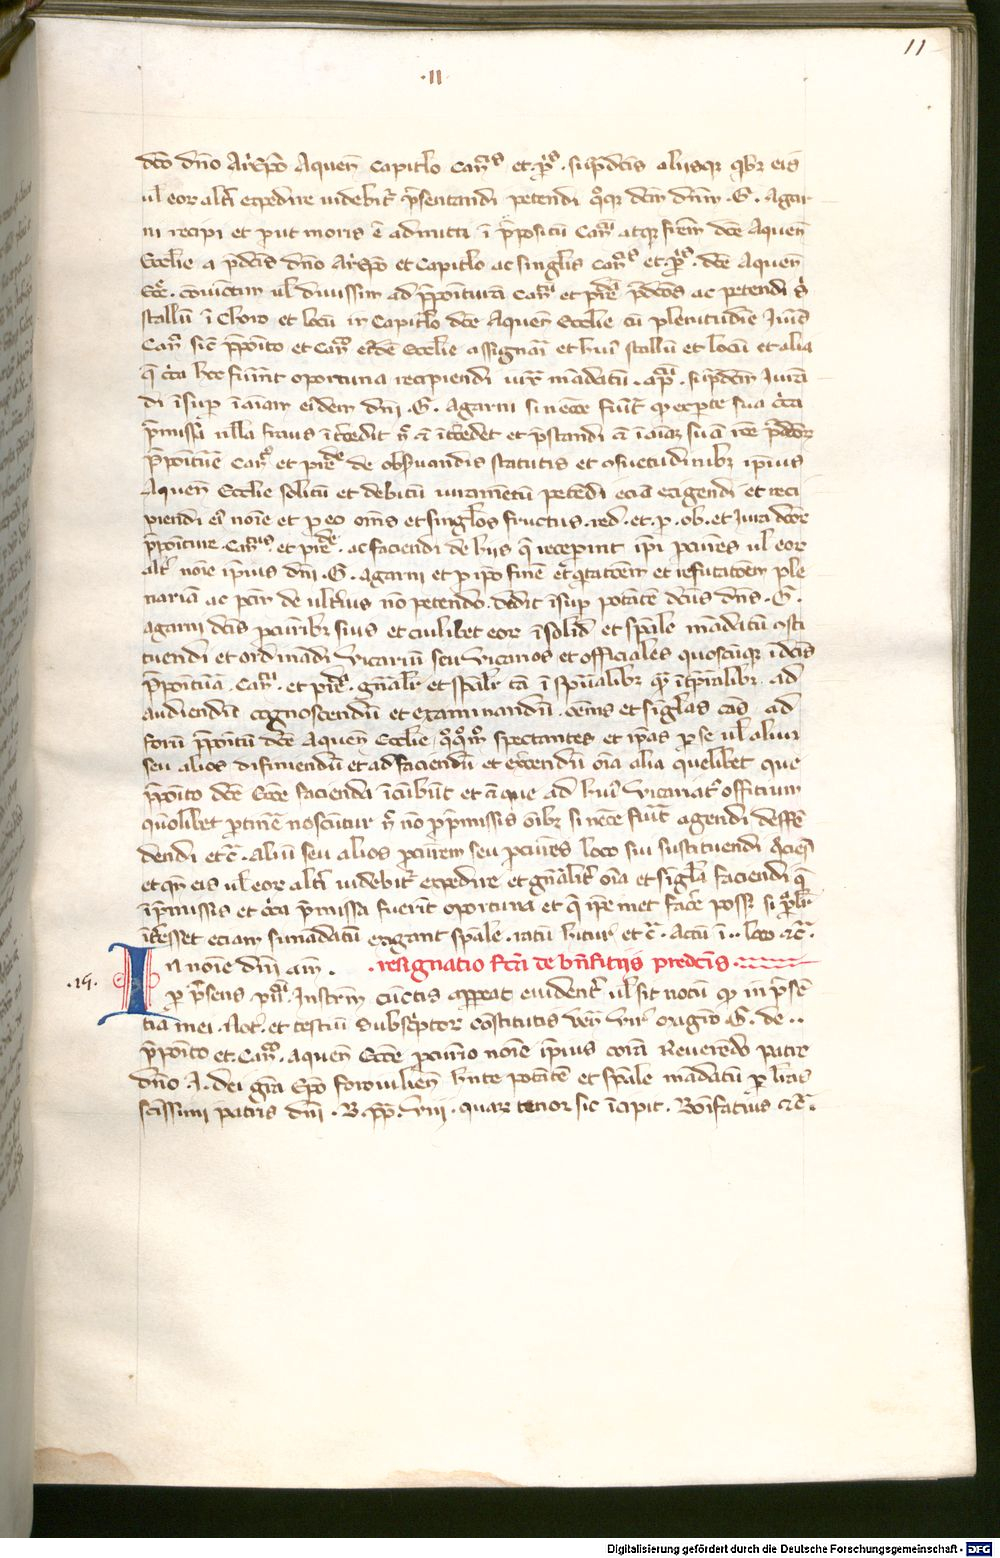 11
·II·
dc̄o dn̄o Archiep̄o Aquen̄ Capitl̓o Can̄cis et p̄. sup̄dc̄is aliisq; qb; eis
ul̓ eor̄ alt̓i expedire uidebit̓ p̄sentandi petendi qq; dc̄m dn̄m .G. Agar
ni recipi et put moris ē admitti ī p̄positū Can̄cū atq; fr̄em dc̄e Aquen̄
Eccl̓ie a p̄dc̄is dn̄o Archiep̄o et Capitl̓o ac singl̓is Can̄cis et p̄. dc̄e Aquen̄
Ecc̄. coniunctim ul̓ diuisim ad p̄poituram Can̄cm et p̄bēd p̄dc̄os ac petendi
stallū ī choro et locū in Capitl̓o dc̄e Aquen̄ Eccl̓ie cū plenitudīe Iuris
Can̄ci sic p̄poito et Can̄co eidē Eccl̓ie assignāi et huī stallū et locū et alia
q̄ c̄ca hec fūint oportuna recipiendi iux̄ mādatū . ap̄. sup̄dc̄m Iurā
di īsup īaīam eidem dn̄i .G. Agarni si nēce fūit q ex pte sua c̄ca
p̄missa nulla fraus īt̓cedit n̄ c̄ īt̓cedet et p̄standi c̄ īaīam suā rōe p̄dc̄or̄
p̄poitūe Can̄ce et p̄bēde de obs̓uandis statutis et ɔsuetudinib; ip̄ius
Aquen̄ Eccl̓ie solitū et debitū iuramētū petēdi eciā exigendi et reci
piendi eī noīe et p eo om̄s et singl̓os fructus . red̄. et . p̄ . ob̄. et Iura dc̄or̄
p̄poiture . Can̄cus et p̄bēde . ac faciendi de hiis q̄ recepint ip̄i pcūres ul̓ eor̄
alt̓ noīe ip̄ius dn̄i .G. Agarni et p ip̄o finē et̓ q̄tatōem et refutatōem ple
nariā ac pctm de ult̓ius nō petendo . dedit īsup potātē dc̄us dn̄s .G.
Agarni dc̄is pcūrib; suis et cuilibet eor̄ īsolid̓ et sp̄ale mādatū ɔsti
tuendi et ordinādi Vicariū seu Vicarios et officiales quoscūq; ī dc̄is
p̄poitura . Can̄ca . et p̄bēd̓ . gn̄al̓r et sp̄al̓r tā ī sp̄ualib; q̄ īt̓palib; . ad
audiendū cognoscendū et examinandū . om̄s et sīgl̓as cās ad
forū p̄poiti dc̄e Aquen̄ Eccl̓ie qqm̄ spectantes et ip̄as p se ul̓ aliū
seu alios difiniendū et ad faciendū et ex̓cendū oīa alia quelibet que
p̄poito dc̄e Ecc̄e facienda īcūbūt et c̄ que ad huī Vicariat̓ offitium
quōlibet ptinē noscūtur n̄ nō p p̄missis oīb; si nēce fuīt agendi deffē
dendi etc̄ . aliū seu alios pcūrem seu pcūres loco sui sustituendi q̓ciēs
et qn̄ eis ul̓ eor̄ alt̓i uidebit̓ expedire et gn̄alit̓ oīa et sigl̓a faciendi q̄
ī p̄missis et c̄ca p̄missa fuerīt oportuna et q̄ ip̄e met face̓ posse si p̄
īt̓esset eciam si mādatū exigant sp̄ale . ratū hitur̄ et c̄ . Actū ī .. loco etc̄ .
·15· In noīe dn̄i am̄ . ·resignatio fcā de bn̄fitijs predcīs·
p p̄sens pu . Instrm̄ cūctis appeat euident̓ ul̓ sit notū q in p̄sē
tia mei . Not̓. et testiū Subsc̓ptor̄ Constitutis Ven̄ vir̓ origīo G. de ..
p̄poito et . Can̄co . Aquen̄ Ecc̄e pcūrio noīe ip̄ius corā Reuerendo patre
dn̄o A. dei gra Ep̄o foroiulien̄ hn̄te potātē et sp̄ale mādatū p lr̄as
sctissimi patris dn̄i . B. pp̄. viii . quar̄ tenor sic īcipit . Bonifatius etc̄ .
Digitalisierung gefördert durch die Deutsche Forschungsgemeinschaft - DFG